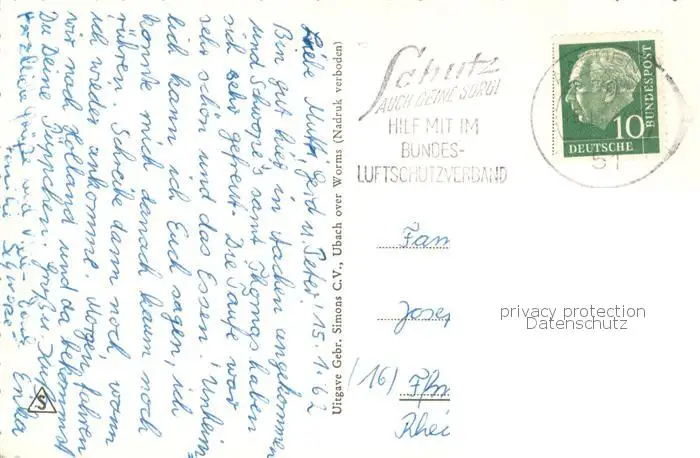 Liebe Mutti, Gerd u. Peter. 15.1.62
Bin gut hier in Aachen angekommen
und Schoope's samt Thomas haben
sich sehr gefreut. Die Taufe war
sehr schön und das Essen!
lich kann ich Euch sagen, ich
konnte mich danach kaum noch
rühren. Schreibe dann noch, wann
ich wieder ankomme. Morgen fahren
wir nach Holland und da bekommst
Du Deine Püppchen.
Herzliche Grüße und
Familie
Erika
S
Uitgave Gebr. Simons C.V., Ubach over Worms (Nadruk verboden)
Schutz
AUCH DEINE SORGE
HILF MIT IM
BUNDES-
LUFTSCHUTZVERBAND
10
DEUTSCHE
BUNDESPOST
51
Fam
Josep
(16) Ffm
Rhei
privacy protection
Datenschutz